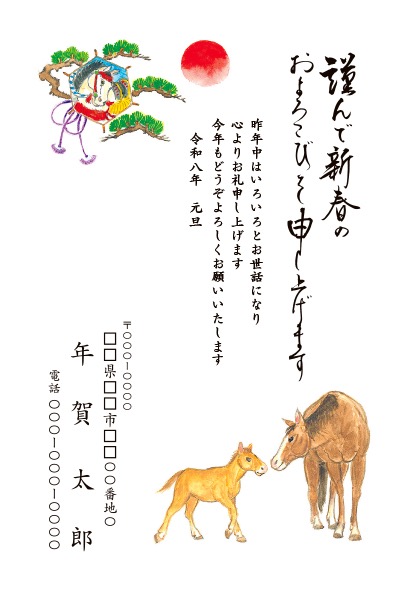 謹んで新春の
およろこびを申し上げます
昨年中はいろいろとお世話になり
心よりお礼申し上げます
今年もどうぞよろしくお願いいたします
令和八年　元旦
〒○○○-○○○○
□□県□□市□□○○番地○
年賀太郎
電話 ○○○-○○○-○○○○